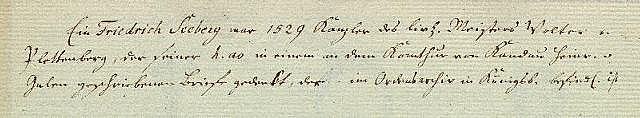 Ein Friedrich Seeberg war 1529 Kanzler des livl. Meisters Wolter v.
Plettenberg, der seiner in einem an dem Komthur von Kandau Heinr. v.
Galen geschriebenen Briefe gedenkt, der im Ordensarchiv in Königsb. befindl. ist